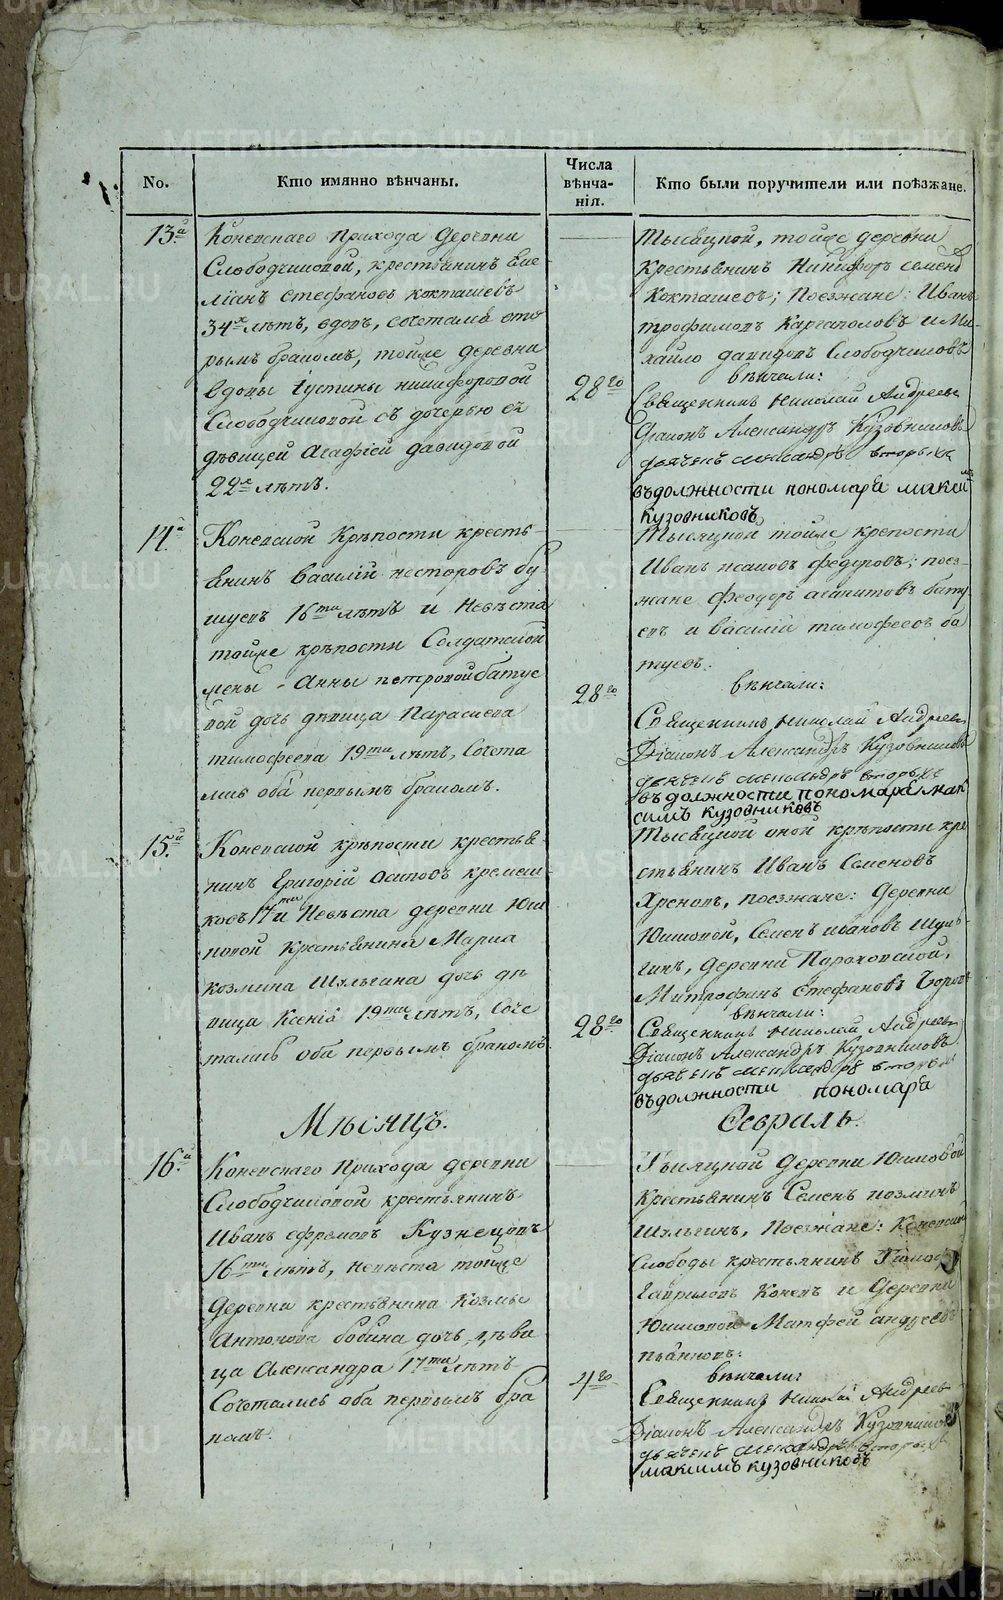 No.
Кто имянно вѣнчаны.
Числа
вѣнча-
нія.
Кто были поручители или поѣзжане.
13й
Коневскаго Прихода Деревни
Слободчиковой, крестьянинъ Еме
ліянъ Стефановъ Кокташевъ
34хъ лѣтъ, вдовъ, сочетался вто
рымъ бракомъ, тойже деревни
вдовы Іустины никифоровой
Слободчиковой съ дочерью ея
дѣвицей Агафіей давидовой
22хъ лѣтъ.
28го
Тысяцкой, тойже деревни
крестьянинъ Никифоръ семеновъ
Кокташевъ; Поезжане: Иванъ
трофимовъ Каргаполовъ и Ми
хайло давидовъ Слободчиковъ
вѣнчали:
Священникъ Николай Андреевъ
Діаконъ Александръ Кузовниковъ
дьячекъ александръ вторыхъ
въдолжности пономаря макси
Кузовниковъ
14й
Коневской Крѣпости кресть
янинъ Василій несторовъ бу
шуевъ 16ти лѣтъ и Невѣста
тойже крѣпости Солдатской
жены Анны петровой батуе
вой дочь дѣвица Параскева
тимофеева 19ти лѣтъ, Сочета
лись оба первымъ бракомъ.
28го
Тысяцкой тойже крепости
Иванъ исаковъ федоровъ; поез
жане Феодоръ агапитовъ бату
евъ и василій тимофеевъ ба
туевъ.
вѣнчали:
Священникъ Николай Андреевъ
Діаконъ Александръ Кузовниковъ
дьячекъ александръ вторыхъ
въдолжности пономаря мак
симъ кузовниковъ
15й
Коневской крѣпости крестья
нинъ Григорій Осиповъ кремеш
ковъ 17ти и Невѣста деревни Юш
повой Крестьянина Марка
козмина Шульгина дочь дѣ
вица Ксенія 19ти лѣтъ, Соче
тались оба первымъ бракомъ.
28го
Тысяцкой оной крѣпости кре
стьянинъ Иванъ Семеновъ
Хреновъ, поезжане: Деревни
Юшковой, Семенъ ивановъ Шуль
гинъ, Деревни Пороховской,
Митрофанъ Стефановъ
вѣнчали:
Священникъ Николай Андреевъ
Діаконъ Александръ Кузовниковъ
дьячекъ александръ вторыхъ
въдолжности пономаря
Мѣсяцъ.
Февраль.
16й
Коневскаго Прихода деревни
Слободчиковой крестьянинъ
Иванъ ефремовъ Кузнецовъ
16ти лѣтъ, невѣста тойже
деревни крестьянина Козмы
Антонова бобина дочь, дѣви
ца Александра 17ти лѣтъ
Сочетались оба первымъ бра
комъ.
4го
Тысяцкой Деревни Юшковой
Крестьянинъ Семенъ козминъ
Шульгинъ, Поезжане: Коневской
Слободы крестьянинъ
гавриловъ Коневъ и Деревни
Юшковой Матфей андреевъ
пьянковъ:
вѣнчали:
Священникъ Николай Андреевъ
Діаконъ Александръ Кузовниковъ
дьячекъ александръ вторыхъ
максимъ кузовниковъ
METRIKI.GASO-URAL.RU